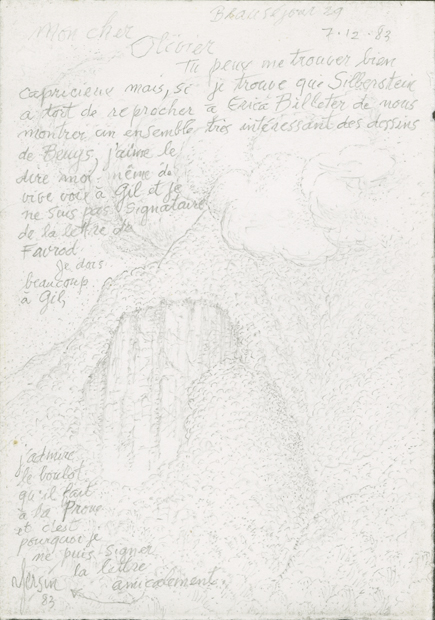 Beauséjour 29
7-12-83
Mon cher
Olivier
Tu peux me trouver bien
capricieux mais, si je trouve que Silberstein
a tort de reprocher à Erica Billeter de nous
montrer un ensemble très intéressant des dessins
de Beuys, j'aime le
dire moi-même de
vive voix à Gil et je
ne suis pas signataire
de la lettre de
Favrod
Je dois
beaucoup
à Gil,
j'admire
le boulot
qu'il fait
à la Proue
et c'est
pourquoi je
ne puis signer
la lettre
amicalement
83